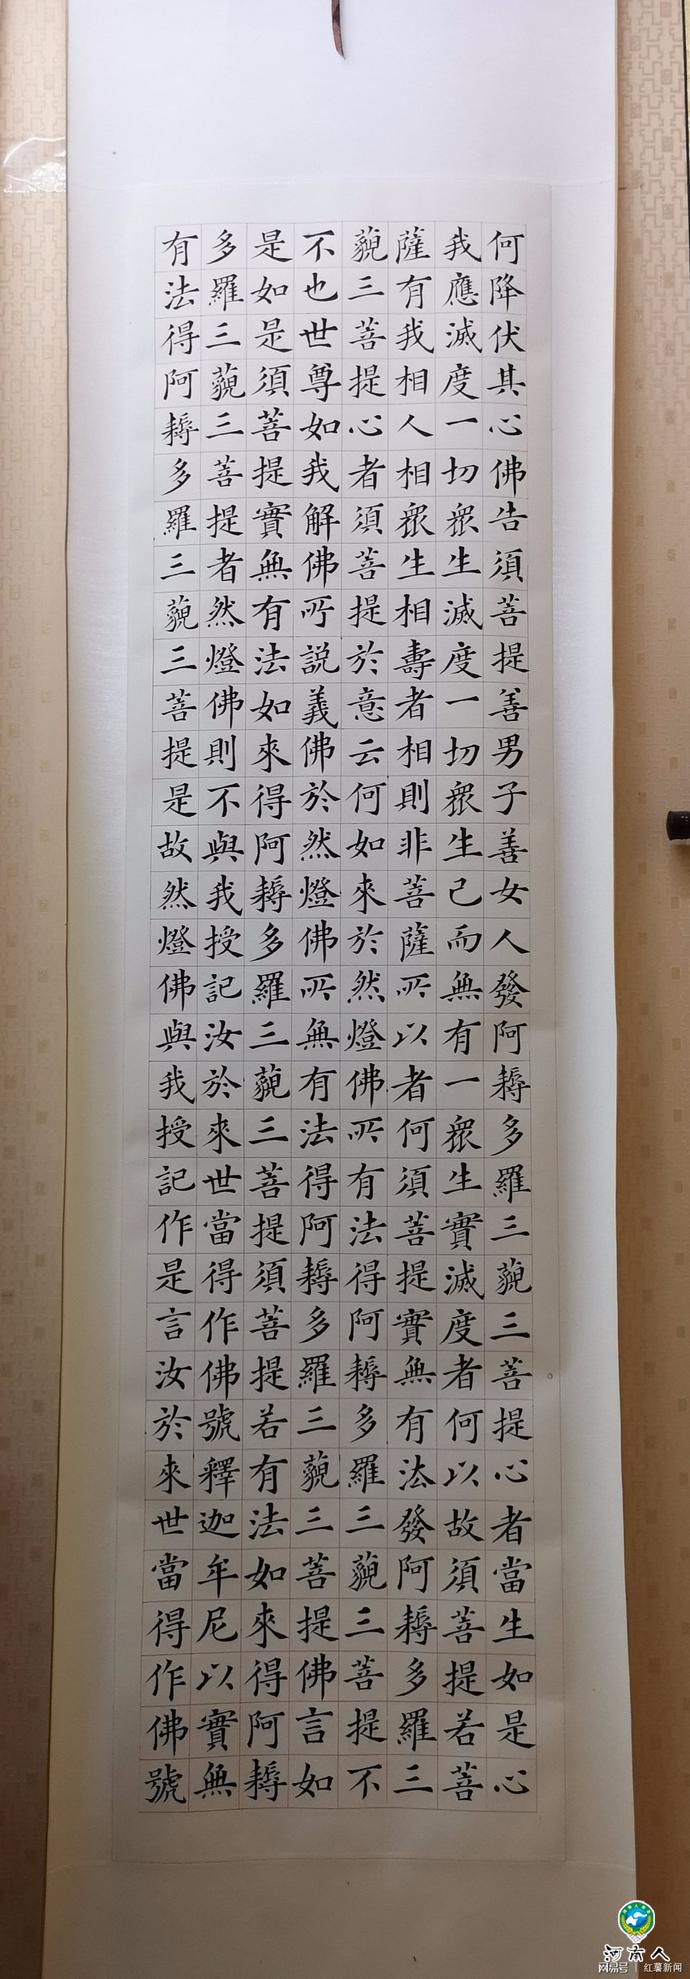 何降伏其心佛告須菩提善男子善女人發阿耨多羅三藐三菩提心者當生如是心
我應滅度一切眾生滅度一切眾生已而無有一眾生實滅度者何以故須菩提若菩
薩有我相人相眾生相壽者相則非菩薩所以者何須菩提實無有法發阿耨多羅三
藐三菩提心者須菩提於意云何如來於然燈佛所有法得阿耨多羅三藐三菩提不
不也世尊如我解佛所說義佛於然燈佛所無有法得阿耨多羅三藐三菩提佛言如
是如是須菩提實無有法如來得阿耨多羅三藐三菩提須菩提若有法如來得阿耨
多羅三藐三菩提者然燈佛則不與我授記汝於來世當得作佛號釋迦牟尼以實無
有法得阿耨多羅三藐三菩提是故然燈佛與我授記作是言汝於來世當得作佛號
河南人
网易号 | 红薯新闻